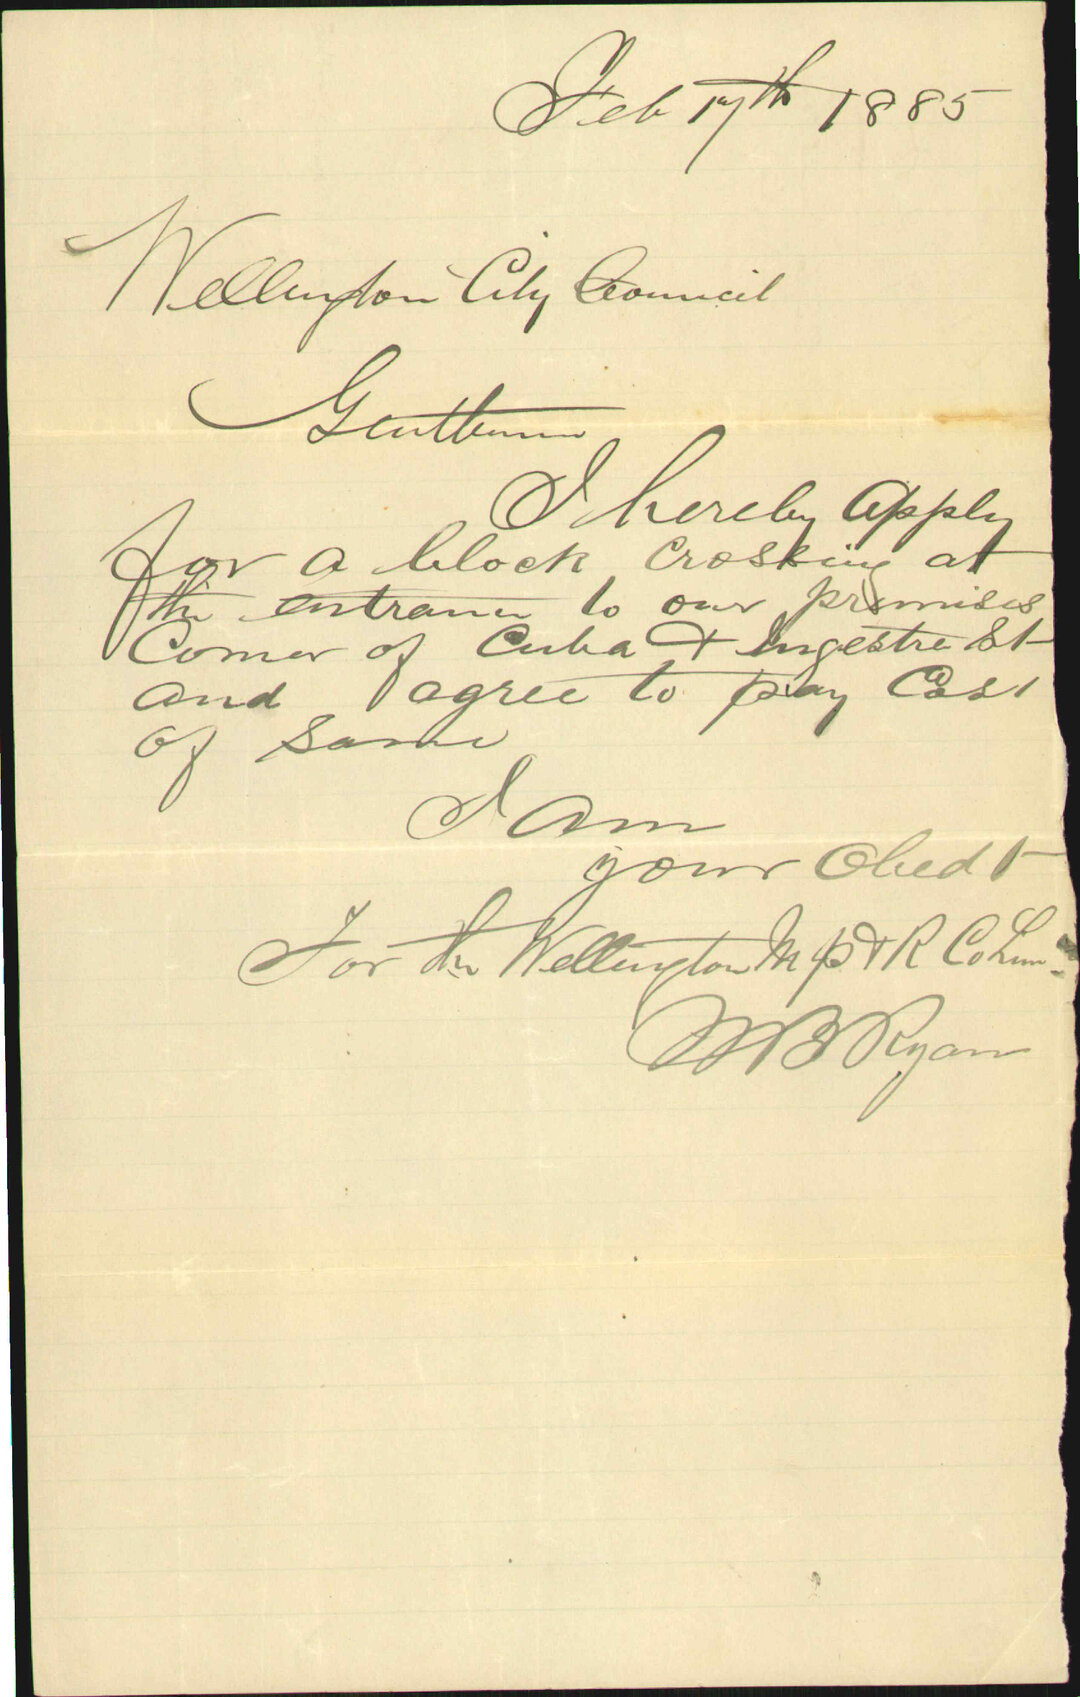 Feb 17th 1885
Wellington City Council
Gentlemen
I hereby apply
for a block crossing at
the entrance to our premises
Corner of Cuba & Ingestre St
and agree to pay Cost
of same
I am
your Obedt
For the Wellington M P & R Co Lim
Ryan